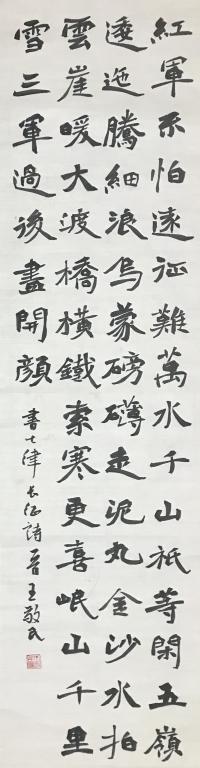 紅軍不怕遠征難萬水千山祇等閑五嶺
逶迤騰細浪烏蒙磅礴走泥丸金沙水拍
雲崖暖大渡橋橫鐵索寒更喜岷山千里
雪三軍過後盡開顏
書七律长征詩 晉王敬民